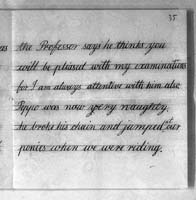 35
the Professor says he thinks you
will be pleased with my examinations
for I am always attentive with him also
Pippo was now very naughty
he broke his chain and jumped at our
ponies when we were riding.